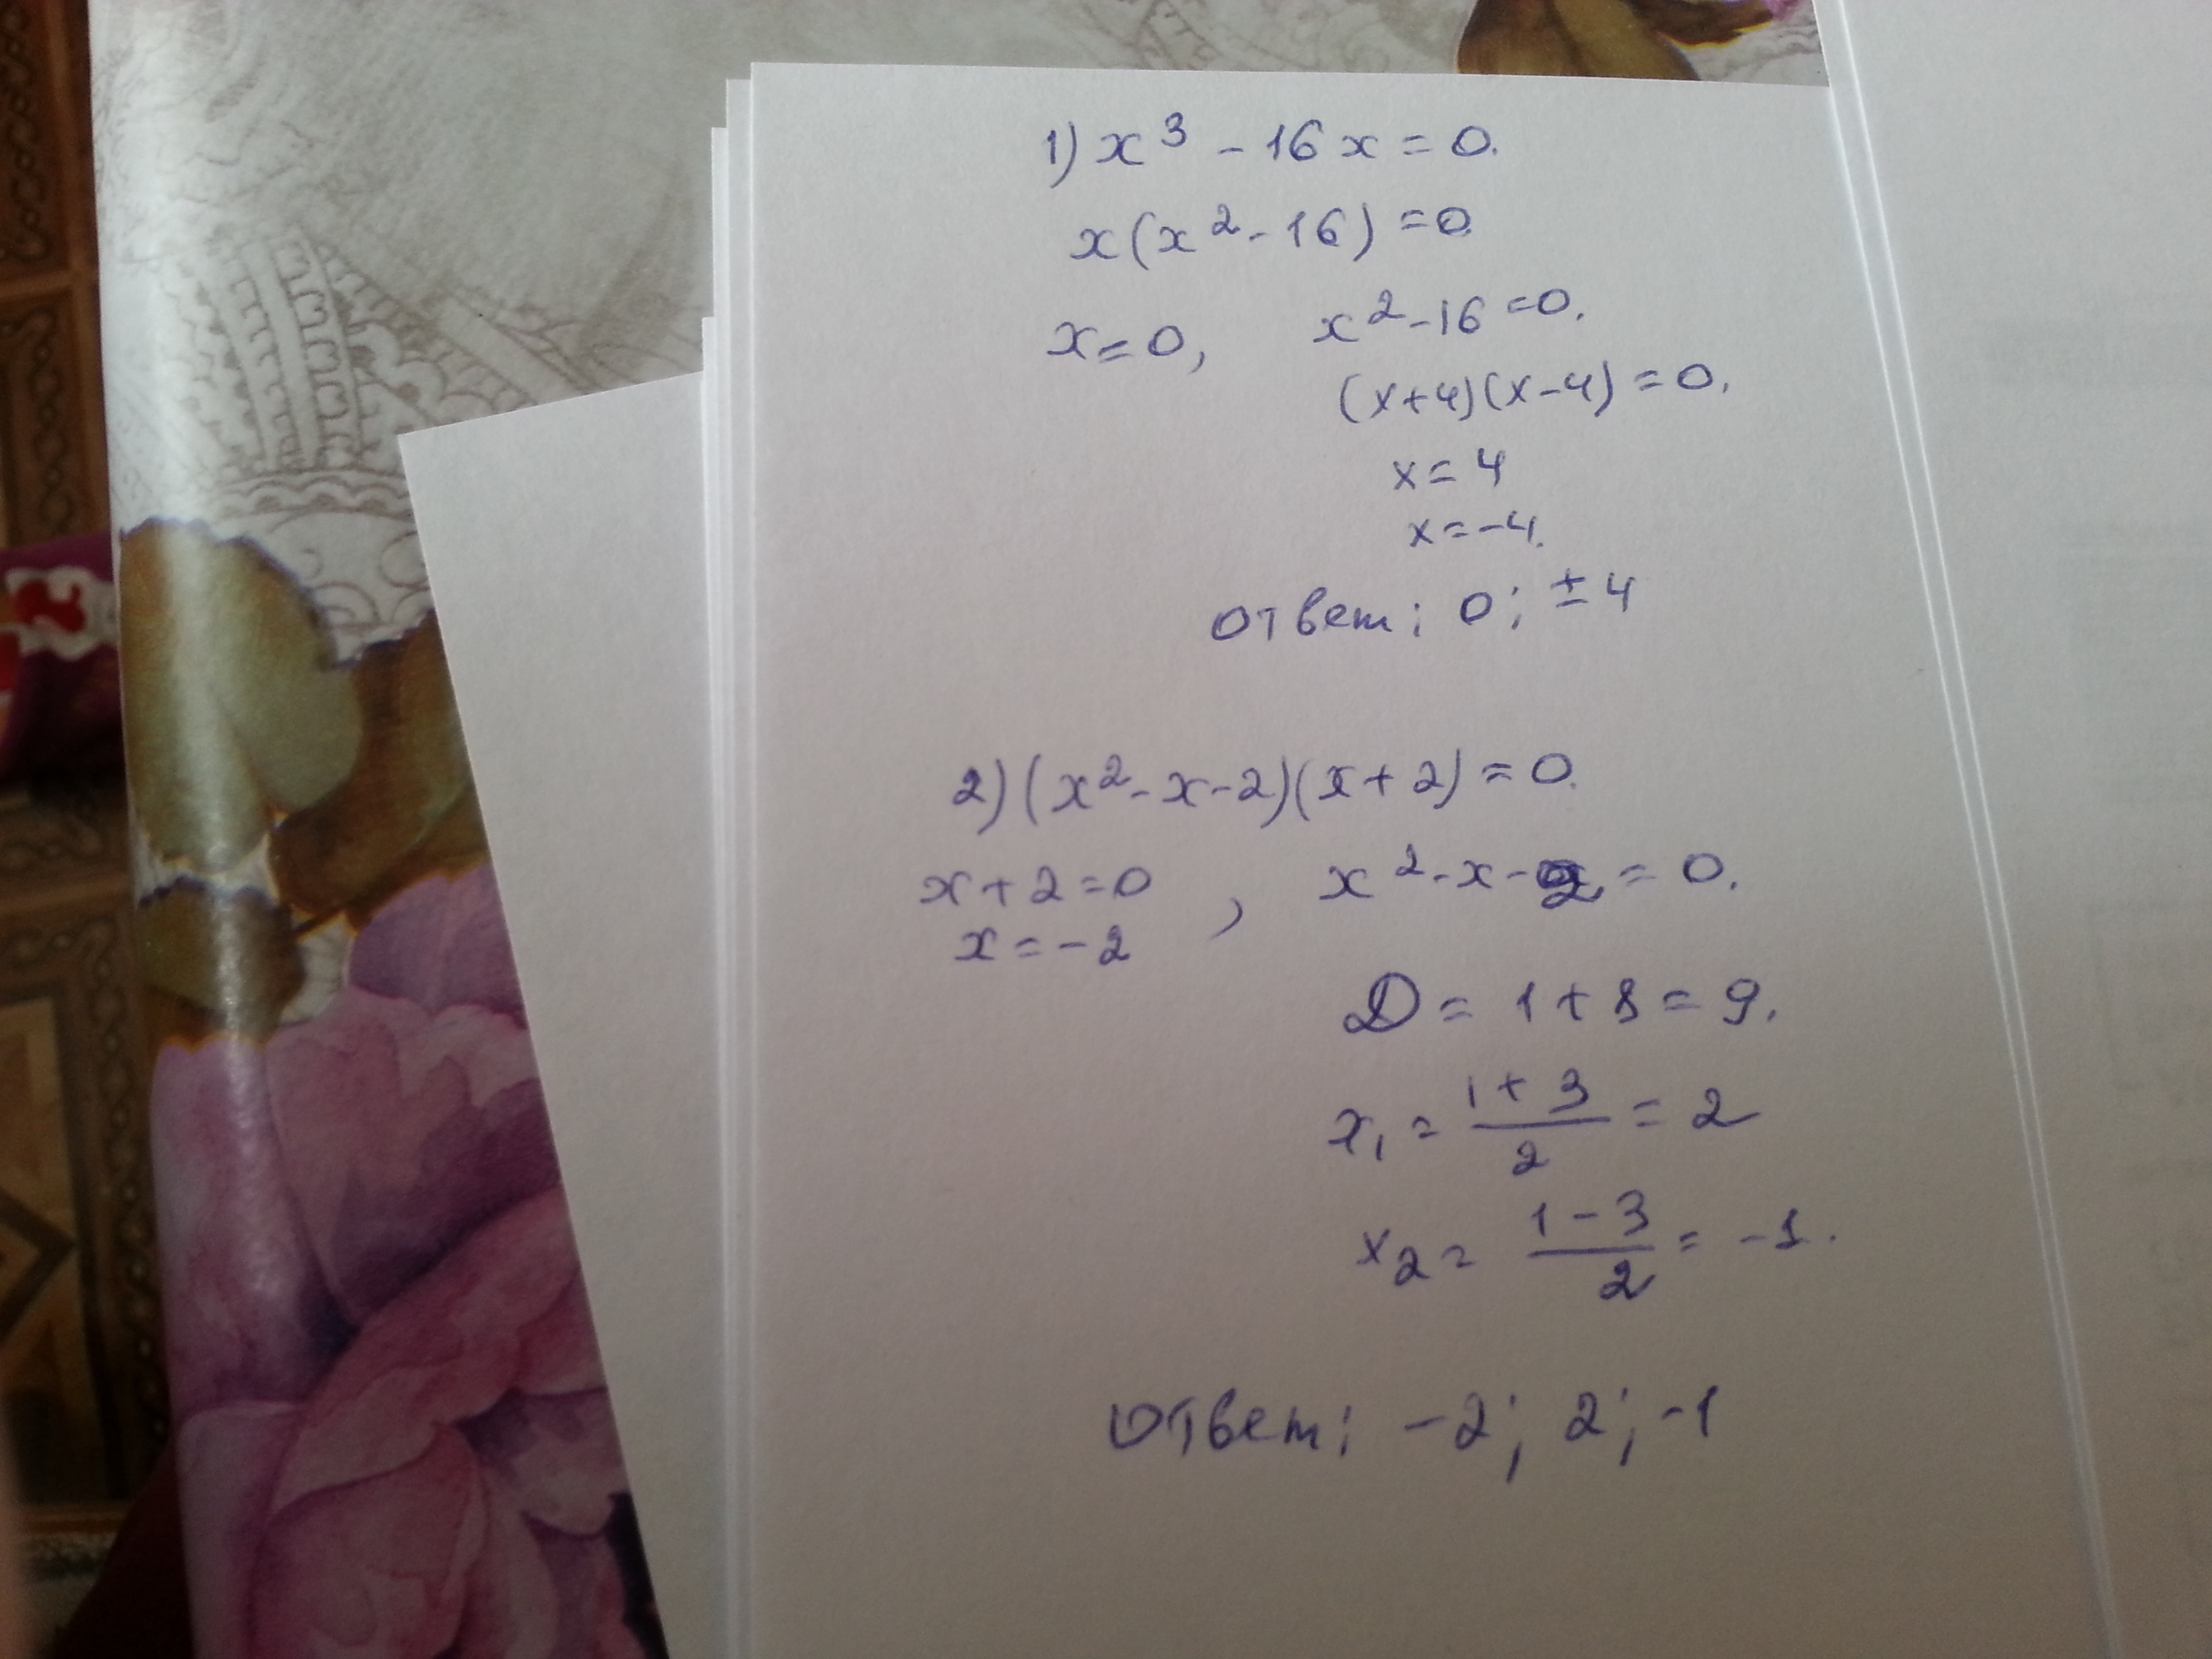 1) x³ - 16x = 0.
x(x² - 16) = 0
x = 0, x² - 16 = 0.
(x+4)(x-4) = 0.
x = 4
x = -4.
ответ: 0; ±4
2) (x² - x - 2)(x + 2) = 0.
x + 2 = 0 , x² - x - 2 = 0.
x = -2
D = 1 + 8 = 9.
x₁ = (1 + 3)/2 = 2
x₂ = (1 - 3)/2 = -1.
ответ: -2; 2; -1